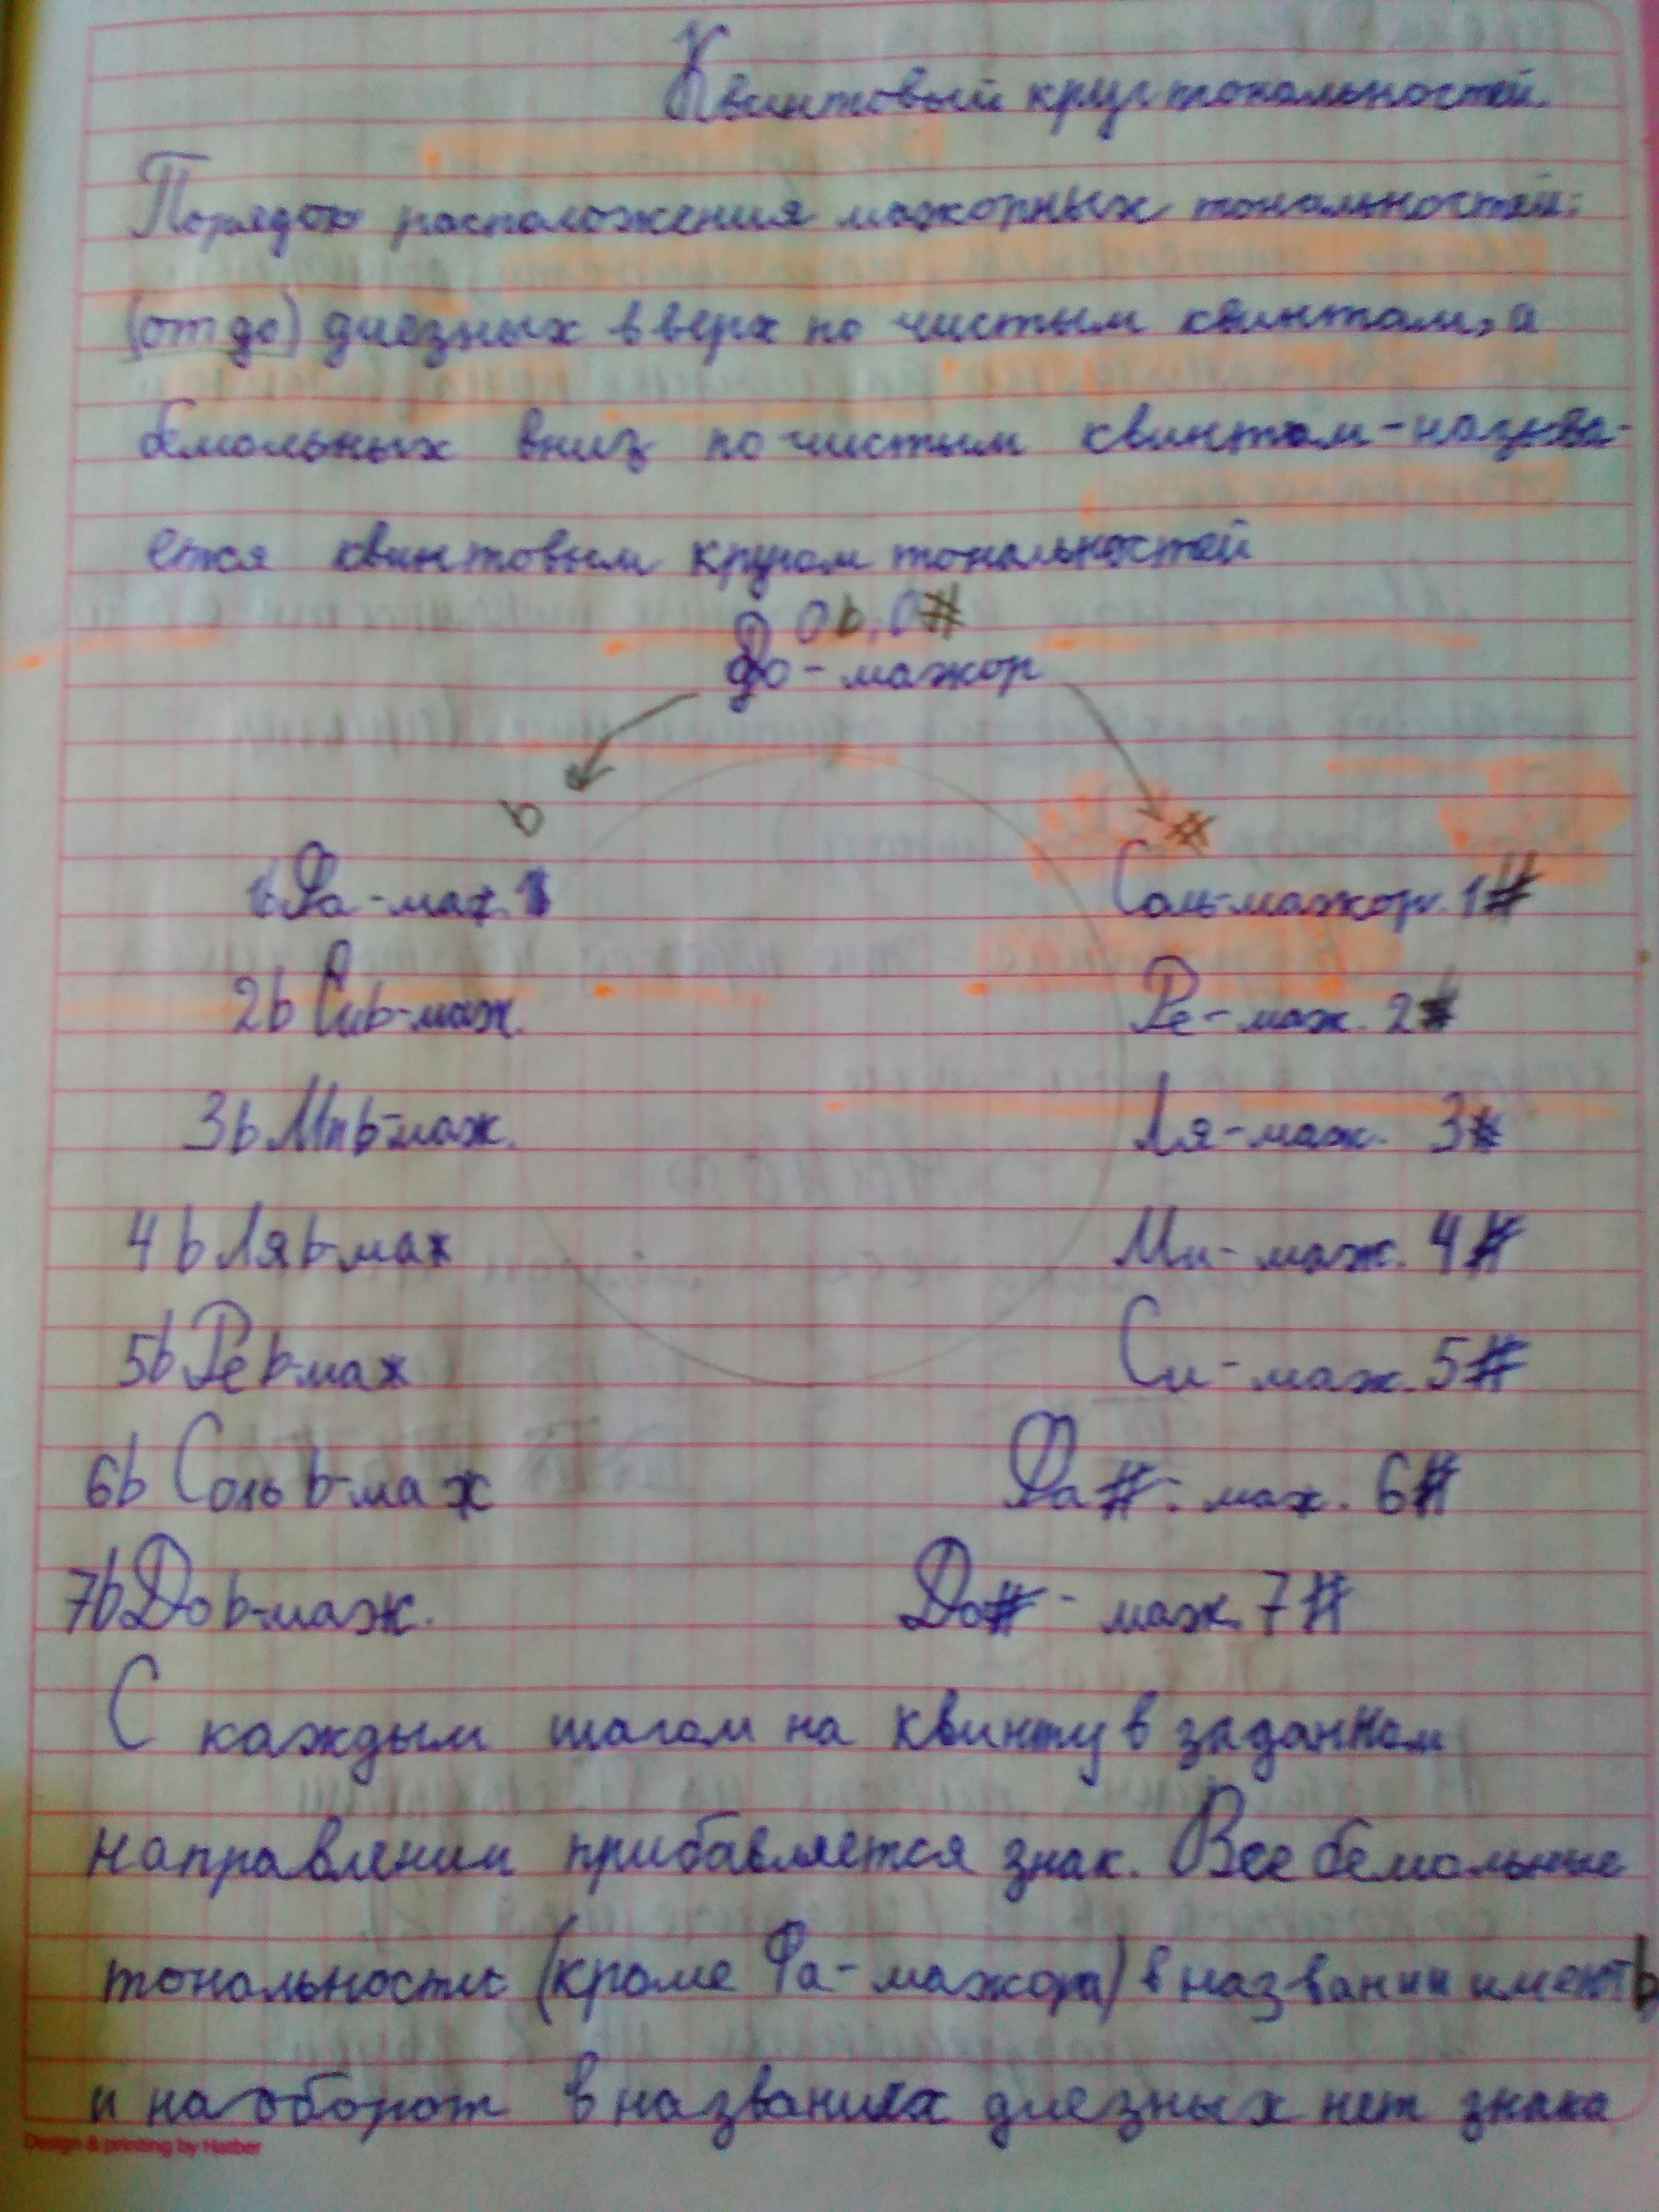 Квинтовый круг тональностей.
Порядок расположения мажорных тональностей:
(от до) диезных вверх по чистым квинтам, а
бемольных вниз по чистым квинтам - называ-
ется квинтовым кругом тональностей
0b, 0#
До - мажор
b #
1b Фа - маж. Соль-мажор. 1#
2b Сиb-маж. Ре - маж. 2#
3b Миb-маж. Ля - маж. 3#
4b Ляb-маж Ми - маж. 4#
5b Реb-маж Си - маж. 5#
6b Сольb-маж Фа# - маж. 6#
7b Доb-маж. До# - маж. 7#
С каждым шагом на квинту в заданном
направлении прибавляется знак. Все бемольные
тональности (кроме Фа - мажора) в названии имеют b,
и наоборот в названиях диезных нет знака
Design & printing by Hatber